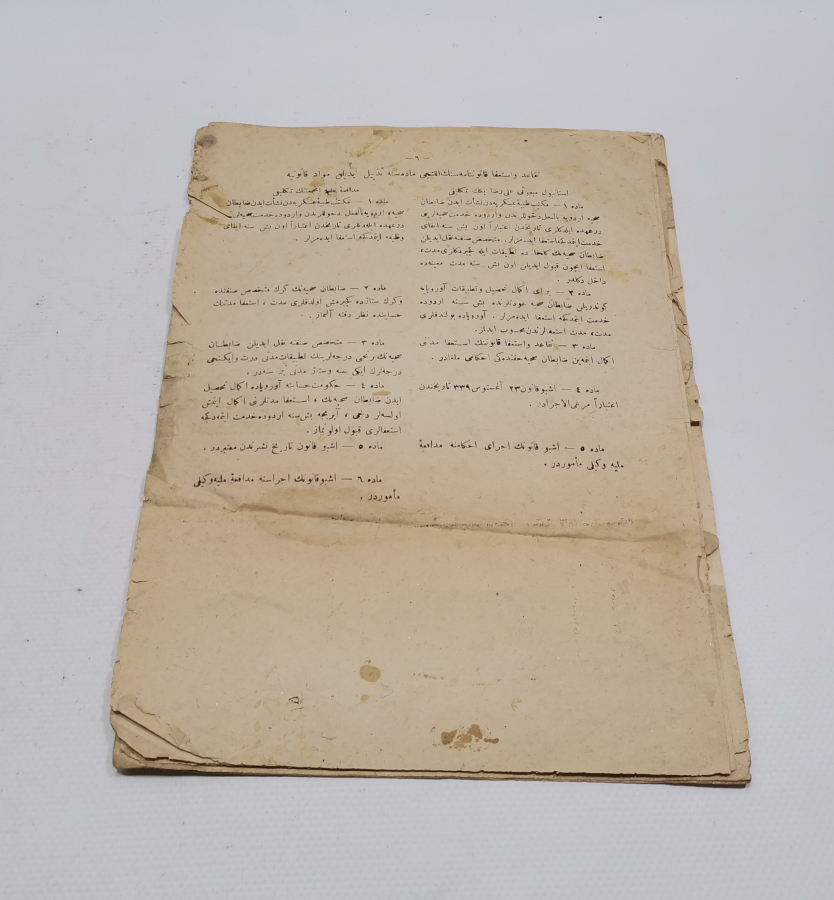 — ٦ —
تقاعد و استعفا قانوننامه‌سنك التنجى ماده‌سنه تذييل ايديلن مواد قانونيه
استانبول مبعوثى على رضا بكك تكليفى
ماده ١ — مكتب طبيهٔ عسكريه‌دن نشأت ايدن ضابطان
صحيه اردويه بالفعل دخوللرندن واردوده خدمت صحيه‌لرينى
درعهده ايلدكلرى تاريخدن اعتباراً اون بش سنه ايفاى
خدمت ايتمدكجه استعفا ايده‌مزلر. متخصص صنفنه نقل ايديلن
ضابطان صحيه‌نك ده تطبيقات ايله كچيردكلرى مدت،
استعفا ايچون قبول ايديلن اون بش سنه مدت معينه‌ده
داخل دكلدر.
ماده ٢ — براى اكمال تحصيل وتطبيقات آوروپايه
كوندريلن ضابطان صحيه عودتلرنده بش سنه اردوده
خدمت ايتمدكجه استعفا ايده‌مزلر. آوروپاده بولندقلرى
مدت، مدت استعفالرندن محسوب ايديلمز.
ماده ٣ — تقاعد واستعفا قانوننك استعفا مدتنى
اكمال ايتمه‌ين ضابطان صحيه حقنده‌كى احكامى ملغادر.
ماده ٤ — اشبو قانون ٢٣ آغستوس ٣٣٩ تاريخندن
اعتباراً مرعى الاجرادر.
ماده ٥ — اشبو قانونك اجراى احكامنه مدافعهٔ
مليه وكيلى مأموردر.
مدافعهٔ مليه انجمننك تكليفى
ماده ١ — مكتب طبيهٔ عسكريه‌دن نشأت ايدن ضابطان
صحيه، اردويه بالفعل دخوللرندن واردوده خدمت صحيه‌لرينى
درعهده ايلدكلرى تاريخدن اعتباراً اون بش سنه ايفاى
وظيفه ايتمدكجه استعفا ايده‌مزلر.
ماده ٢ — ضابطان صحيه‌نك كرك متخصص صنفنده
وكرك ستاژده كچيرمش اولدقلرى مدت، استعفا مدتنك
حسابنده نظر دقته آلنماز.
ماده ٣ — متخصص صنفنه نقل ايديلن ضابطان
صحيه‌نك برنجى درجه‌لرينك تطبيقات مدتى درت وايكنجى
درجه‌لرك ايكى سنه وستاژ مدتى بر سنه‌در.
ماده ٤ — حكومت حسابنه آوروپاده اكمال تحصيل
ايدن ضابطان صحيه‌نك، استعفا مدتلرينى اكمال ايتمش
اولسه‌لر دخى، آيريجه بش سنه اردوده خدمت ايتمدكجه
استعفالرى قبول اولونماز.
ماده ٥ — اشبو قانون تاريخ نشرندن معتبردر.
ماده ٦ — اشبو قانونك اجراسنه مدافعهٔ مليه وكيلى
مأموردر.